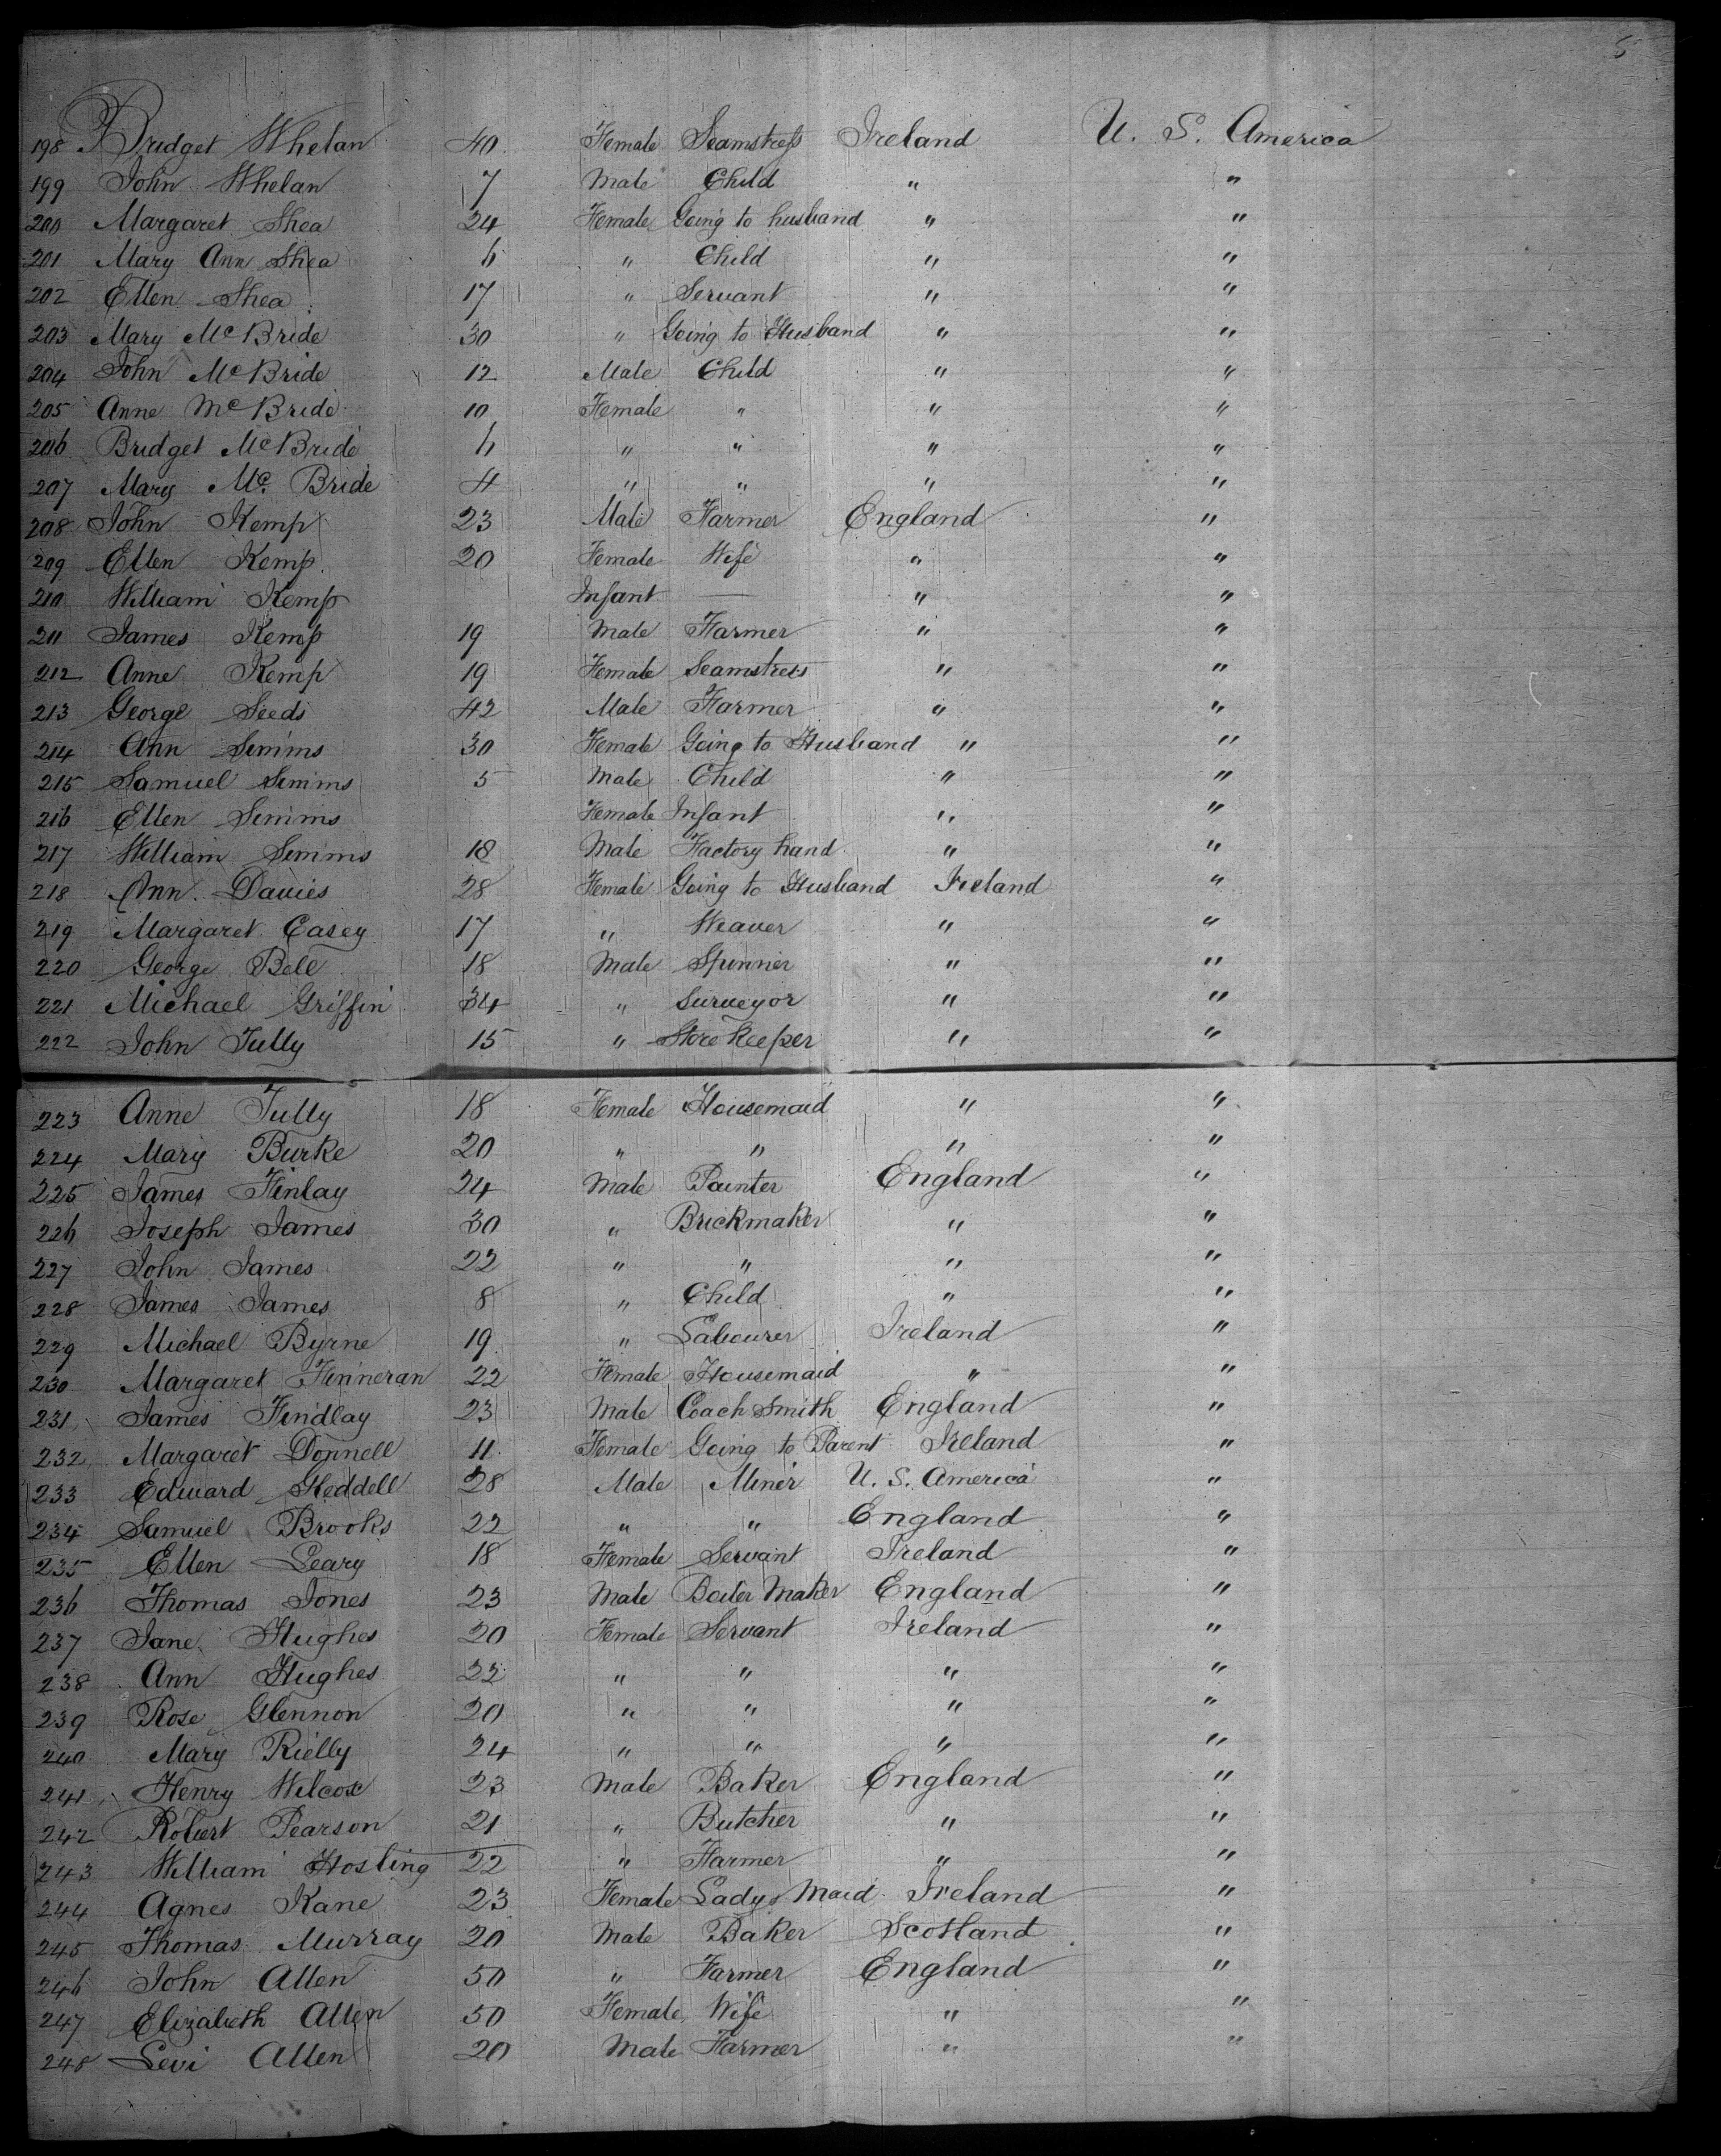 5
198 Bridget Whelan 40 Female Seamstress Ireland U. S. America
199 John Whelan 7 Male Child " "
200 Margaret Shea 24 Female Going to husband " "
201 Mary Ann Shea 6 " Child " "
202 Ellen Shea 17 " Servant " "
203 Mary McBride 30 " Going to Husband " "
204 John McBride 12 Male Child " "
205 Anne McBride 10 Female " " "
206 Bridget McBride 6 " " " "
207 Mary Mc. Bride 4 " " " "
208 John Kemp 23 Male Farmer England "
209 Ellen Kemp 20 Female Wife " "
210 William Kemp Infant — " "
211 James Kemp 19 Male Farmer " "
212 Anne Kemp 19 Female Seamstress " "
213 George Seeds 42 Male Farmer " "
214 Ann Simms 30 Female Going to Husband " "
215 Samuel Simms 5 Male Child " "
216 Ellen Simms Female Infant " "
217 William Simms 18 Male Factory hand " "
218 Ann Davies 28 Female Going to Husband Ireland "
219 Margaret Casey 17 " Weaver " "
220 George Bell 18 Male Spinner " "
221 Michael Griffin 34 " Surveyor " "
222 John Tully 15 " Store Keeper " "
223 Anne Tully 18 Female Housemaid " "
224 Mary Burke 20 " " " "
225 James Finlay 24 Male Painter England "
226 Joseph James 30 " Brickmaker " "
227 John James 22 " " " "
228 James James 8 " Child " "
229 Michael Byrne 19 " Labourer Ireland "
230 Margaret Finneran 22 Female Housemaid " "
231 James Findlay 23 Male Coach Smith England "
232 Margaret Donnell 11 Female Going to Parent Ireland "
233 Edward Heddell 28 Male Miner U. S. America "
234 Samuel Brooks 22 " " England "
235 Ellen Leary 18 Female Servant Ireland "
236 Thomas Jones 23 Male Boiler Maker England "
237 Jane Hughes 20 Female Servant Ireland "
238 Ann Hughes 22 " " " "
239 Rose Glennon 20 " " " "
240 Mary Rielly 24 " " " "
241 Henry Wilcox 23 Male Baker England "
242 Robert Pearson 21 " Butcher " "
243 William Hosling 22 " Farmer " "
244 Agnes Kane 23 Female Ladys Maid Ireland "
245 Thomas Murray 20 Male Baker Scotland "
246 John Allen 50 " Farmer England "
247 Elizabeth Allen 50 Female Wife " "
248 Levi Allen 20 Male Farmer " "